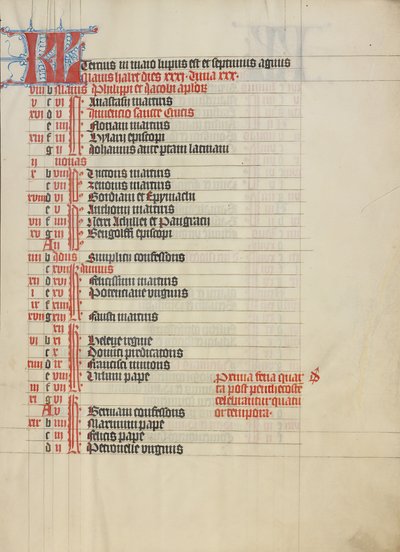 KL Tercius in maio lupus est et septimus aguis
Maius habet dies xxxi · luna xxx ·
b Maius Philippi et Jacobi aplor
v c vi Anastasii martiris
xvi d v Inuencio sancte Crucis
e iiii Floriani martiris
xiii f iii Hylarii episcopi
ii g ii Johannis ante portam latinam
ii nonas
x b viii Victoris martiris
c vii martiris
xviii d vi Gordiani et Epymachi
e v Anthonii martiris
vii f iiii Nerei Achillei et Pangracii
xv g iii episcopi
A ii
iiii b ydus Simplicii confessoris
c xvii iunius
xii d xvi Felicissimi martiris
i e xv Potenciane uirginis
ix f
xvii g xiii Fausti martiris
xii
vi b xi Helene regine
c x Dominici predicatoris
xiiii d ix Francisci minoris
e viii Urbani pape
iii f vii
xi g vi
A v Germani confessoris
xix b iiii Maximini pape
c iii Felicis pape
d ii Petronelle uirginis
Prima feria quar
ta post penthecoste
celebrantur quatu
or tempora ·